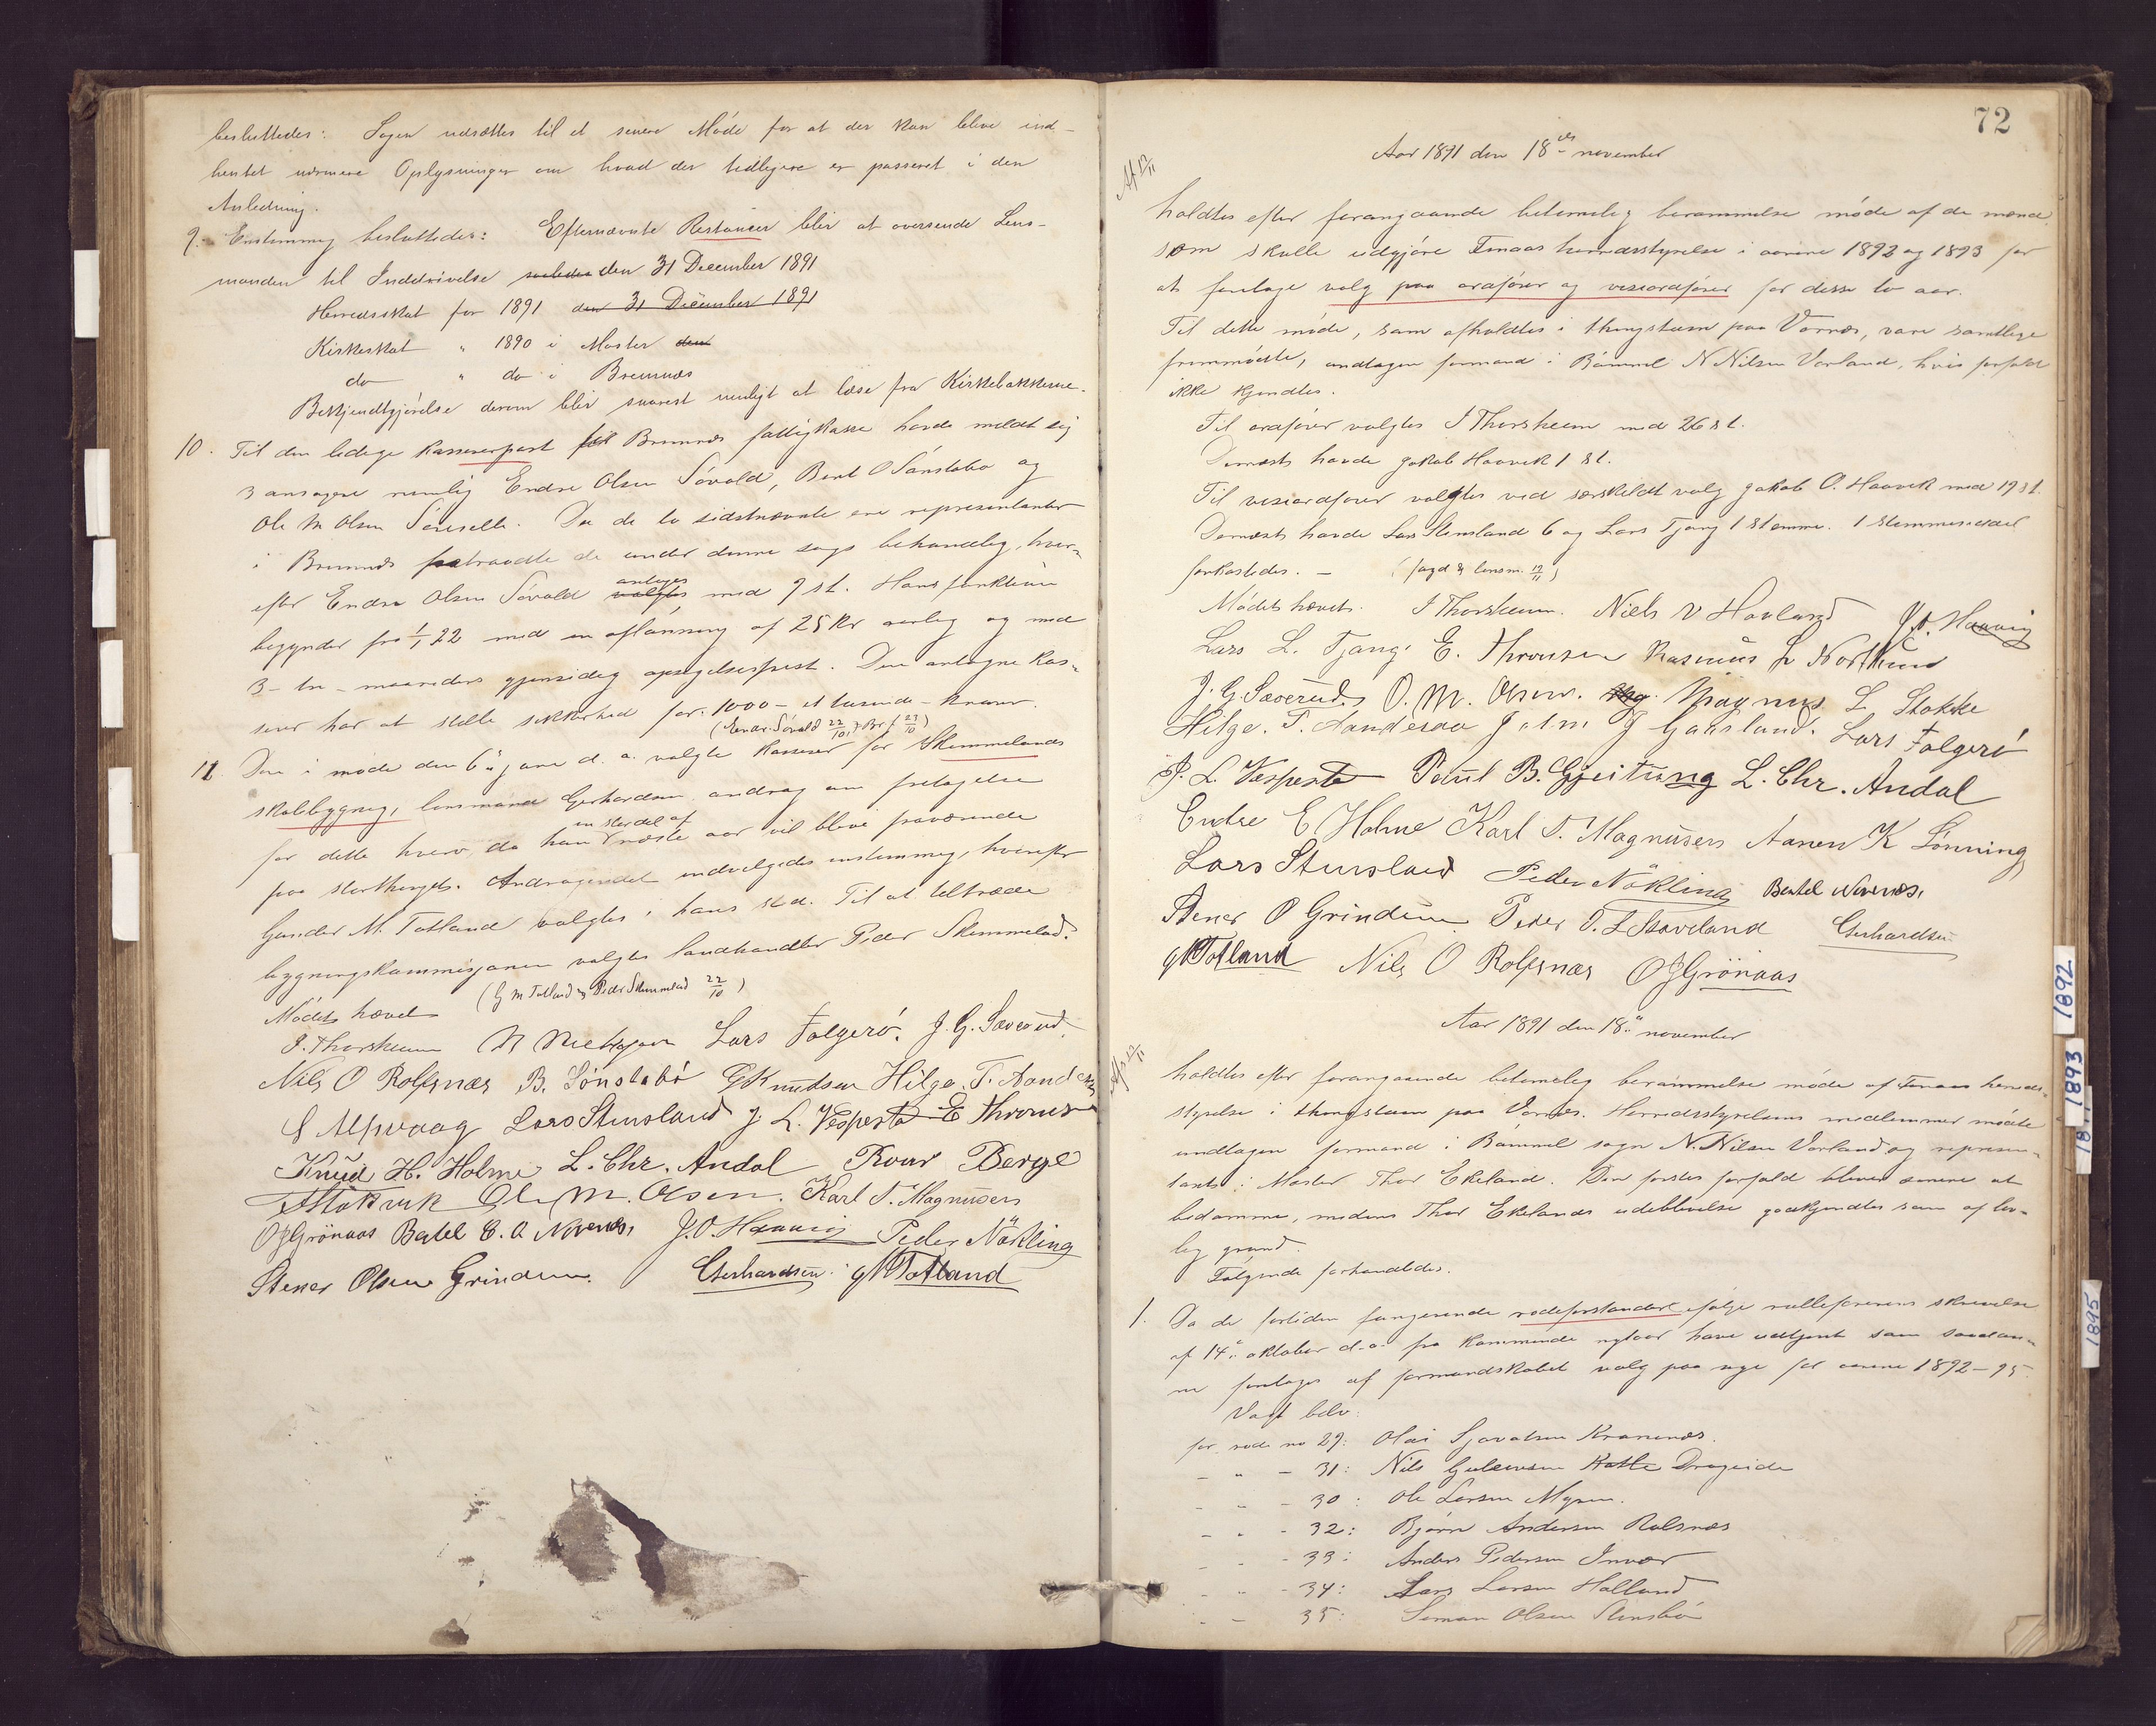 besluttedes: Sagen udsættes til et senere Møde for at der kan blive ind-
hentet nærmere Oplysninger om hvad der tidligere er passeret i den
Anledning.
9. Enstemmig besluttedes: Efternævnte Restancer blir at oversende Lens-
manden til Inddrivelse den 31 December 1891
Herredsskat for 1891 den 31 December 1891
Kirkeskat " 1890 i Moster den
do " do i Bremnæs
Bekjendtgjørelse derom blir snarest muligt at læse fra Kirkebakkerne.
10. Til den ledige kassererpost for Bremnæs fattigkasse havde meldt sig
3 ansøgere nemlig Endre Olsen Søvold, Bent O Sønstabø og
Ole M Olsen. Da de to sidstnævnte ere repræsentanter
i Bremnæs fratraadte de under denne sags behandling, hver-
efter Endre Olsen Søvold valgtes antages med 9 st. Hans funktion
begynder fra 1/1 92 med en aflønning af 25 Kr aarlig og med
3 - tre - maaneders gjensidig opsigelsesfrist. Den antagne kas-
serer har at stille sikkerhed for 1000 - et tusinde - kroner.
(Endre Søvold 22/10, Br. f 23/10)
11. Den i møde den 6te juni d. a. valgte kasserer for Skimmelands
skolebygning, lensmand Gerhardsen androg om fritagelse
for dette hverv, da han en stor del af næste aar vil blive fraværende
paa storthinget. Andragendet indvilgedes enstemmig, hvorefter
Gunder M. Totland valgtes i hans sted. Til at tiltræde
bygningskommisjonen valgtes landhandler Peder Skimmeland.
Mødet hævet (G M Totland og Peder Skimmeland 22/10)
I. Thorsheim Lars Folgerö. J. G. Sæverud.
Nils O Rolfsnæs B. Sönstabö G Knudsen Hilge. T. Aandesaa
S Alfvaag Lars Stensland J. L. Vespestad E Thronsen
Knud H. Holme L. Chr. Andal Roar Berge
Ole M. Olsen. Karl T. Magnusen
O J Grönaas Bertel E. A Nevenæs, J. O. Haavig Peder Nökling
Stener Olsen Grindeim. Gerhardsen. G M Totland
72
Af 17/11
Aar 1891 den 18de november
holdtes efter forangaaende betimelig berammelse møde af de mænd
som skulle udgjøre Finaas herredsstyrelse i aarene 1892 og 1893 for
at foretage valg paa ordfører og viseordfører for disse to aar.
Til dette møde, som afholdtes i thingstuen paa Vornæs, vare samtlige
fremmødte, undtagen formand i Bømmel N Nilsen Vorland, hvis forfald
ikke kjendtes.
Til ordfører valgtes I Thorsheim med 26 st.
Dernæst havde Jakob Haavik 1 st.
Til viseordfører valgtes ved særskildt valg Jakob O. Haavik med 19 st.
Dernæst havde Lars Stensland 6 og Lars Tjong 1 stemme. 1 stemmeseddel
forkastedes. - (fogd & lensm. 19/11)
Mødet hævet. I Thorsheim. Niels N Havland J. O. Haavig
Lars L. Tjong. E. Thronsen Rasmus L Nortun
J. G. Sæverud. O. M. Olsen. Magnus L Stokke
Hilge. T. Aandesaa John J Gaasland. Lars Folgerö
J. L. Vespestad Paul B. Gjeitung L. Chr. Andal
Endre E Holme Karl T. Magnusen Aanen K Lönning
Lars Stensland Peder Nökling Bertel Nevenæs,
Stener O Grindeim Peder T. L Skoveland Gerhardsen
G M Totland Nils O Rolfsnæs O J Grönaas
Af 17/11
Aar 1891 den 18de november
holdtes efter forangaaende betimelig berammelse møde af Finaas herreds-
styrelse i thingstuen paa Vornæs. Herredsstyrelsens medlemmer mødte
undtagen formand i Bømmel sogn N. Nilsen Vorland og repræsen-
tant i Moster Thor Ekeland. Den førstes forfald bliver senere at
bedømme, medens Thor Ekelands udeblivelse godkjendtes som af lov-
lig grund.
Følgende forhandledes.
1. Da de fortiden fungerende rodeforstandere ifølge rulleførerens skrivelse
af 14de oktober d.a. fra kommende nytaar have udtjent som saadan-
ne foretages af formandskabet valg paa nye for aarene 1892-95.
Valgt blev:
for rode no 29: Olai Sjovatsen Kranenæs.
- " - 31: Nils Gulewsen Katte Drageide
- " - 30: Ole Larsen Myren.
- " - 32: Bjørn Andersen Rolsnæs
- " - 33: Anders Pedersen Innvær
- " - 34: Lars Larsen Halland
- " - 35: Simon Olsen Stensbø
1892
1893
1895